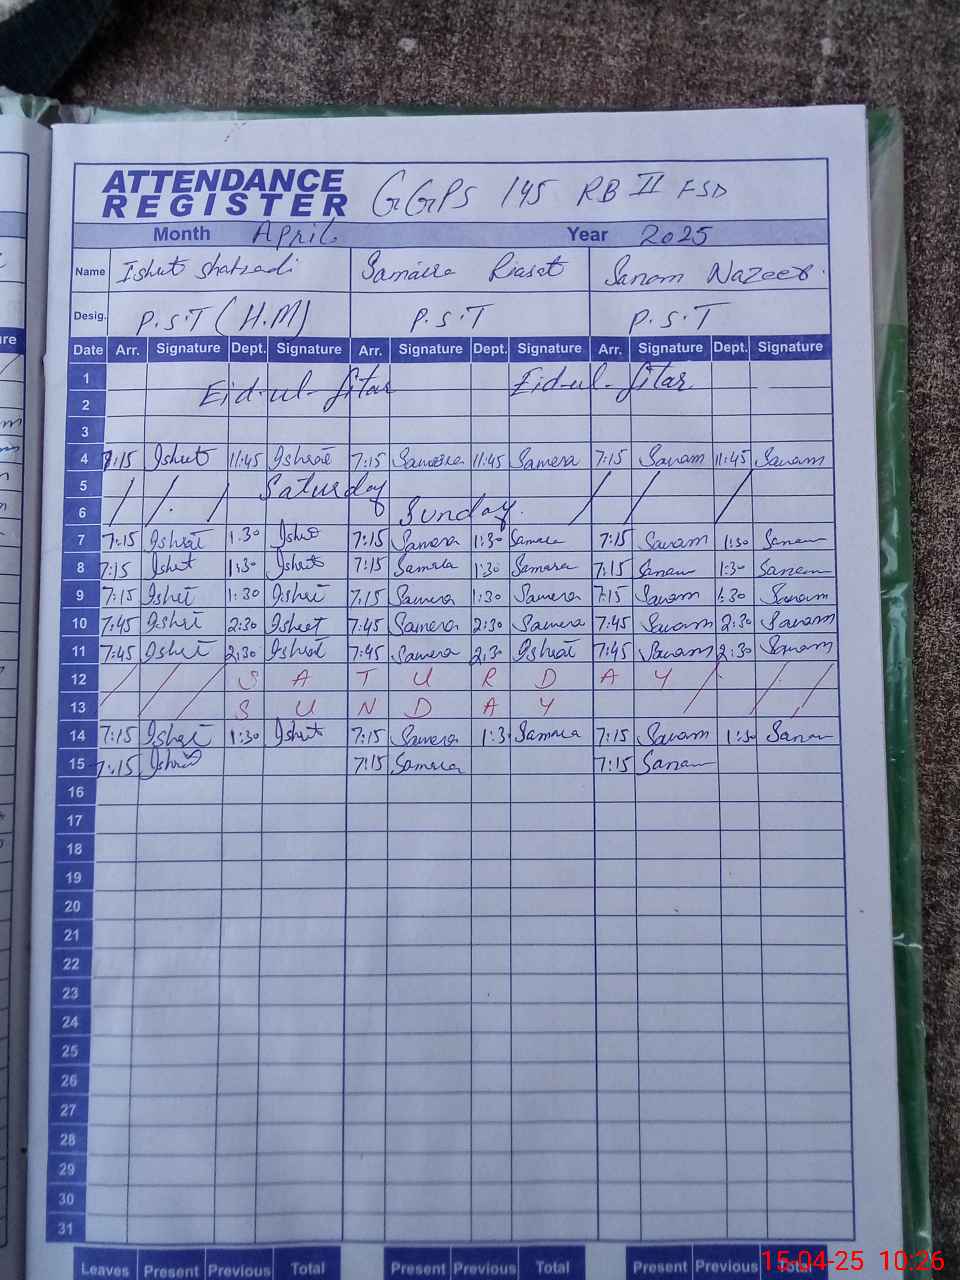 ATTENDANCE REGISTER GGPS 145 RB II FSD
Month April Year 2025
Name Ishrat Shahzadi Samaira Riasat Sanam Nazeer
Desig. P.S.T (H.M) P.S.T P.S.T
Date Arr. Signature Dept. Signature Arr. Signature Dept. Signature Arr. Signature Dept. Signature
1 Eid-ul-fitar Eid-ul-fitar
2
3
4 7:15 Ishrat 11:45 Ishrat 7:15 Samaira 11:45 Samera 7:15 Sanam 11:45 Sanam
5 Saturday
6 Sunday.
7 7:15 Ishrat 1:30 Ishrat 7:15 Samera 1:30 Samera 7:15 Sanam 1:30 Sanam
8 7:15 Ishrat 1:30 Ishrat 7:15 Samera 1:30 Samera 7:15 Sanam 1:30 Sanam
9 7:15 Ishrat 1:30 Ishrat 7:15 Samera 1:30 Samera 7:15 Sanam 1:30 Sanam
10 7:45 Ishrat 2:30 Ishrat 7:45 Samera 2:30 Samera 7:45 Sanam 2:30 Sanam
11 7:45 Ishrat 2:30 Ishrat 7:45 Samera 2:30 Ishrat 7:45 Sanam 2:30 Sanam
12 S A T U R D A Y
13 S U N D A Y
14 7:15 Ishrat 1:30 Ishrat 7:15 Samera 1:3 Samera 7:15 Sanam 1:30 Sanam
15 7:15 Ishrat 7:15 Samera 7:15 Sanam
16
17
18
19
20
21
22
23
24
25
26
27
28
29
30
31
Leaves Present Previous Total Present Previous Total Present Previous Total
15-04-25 10:26